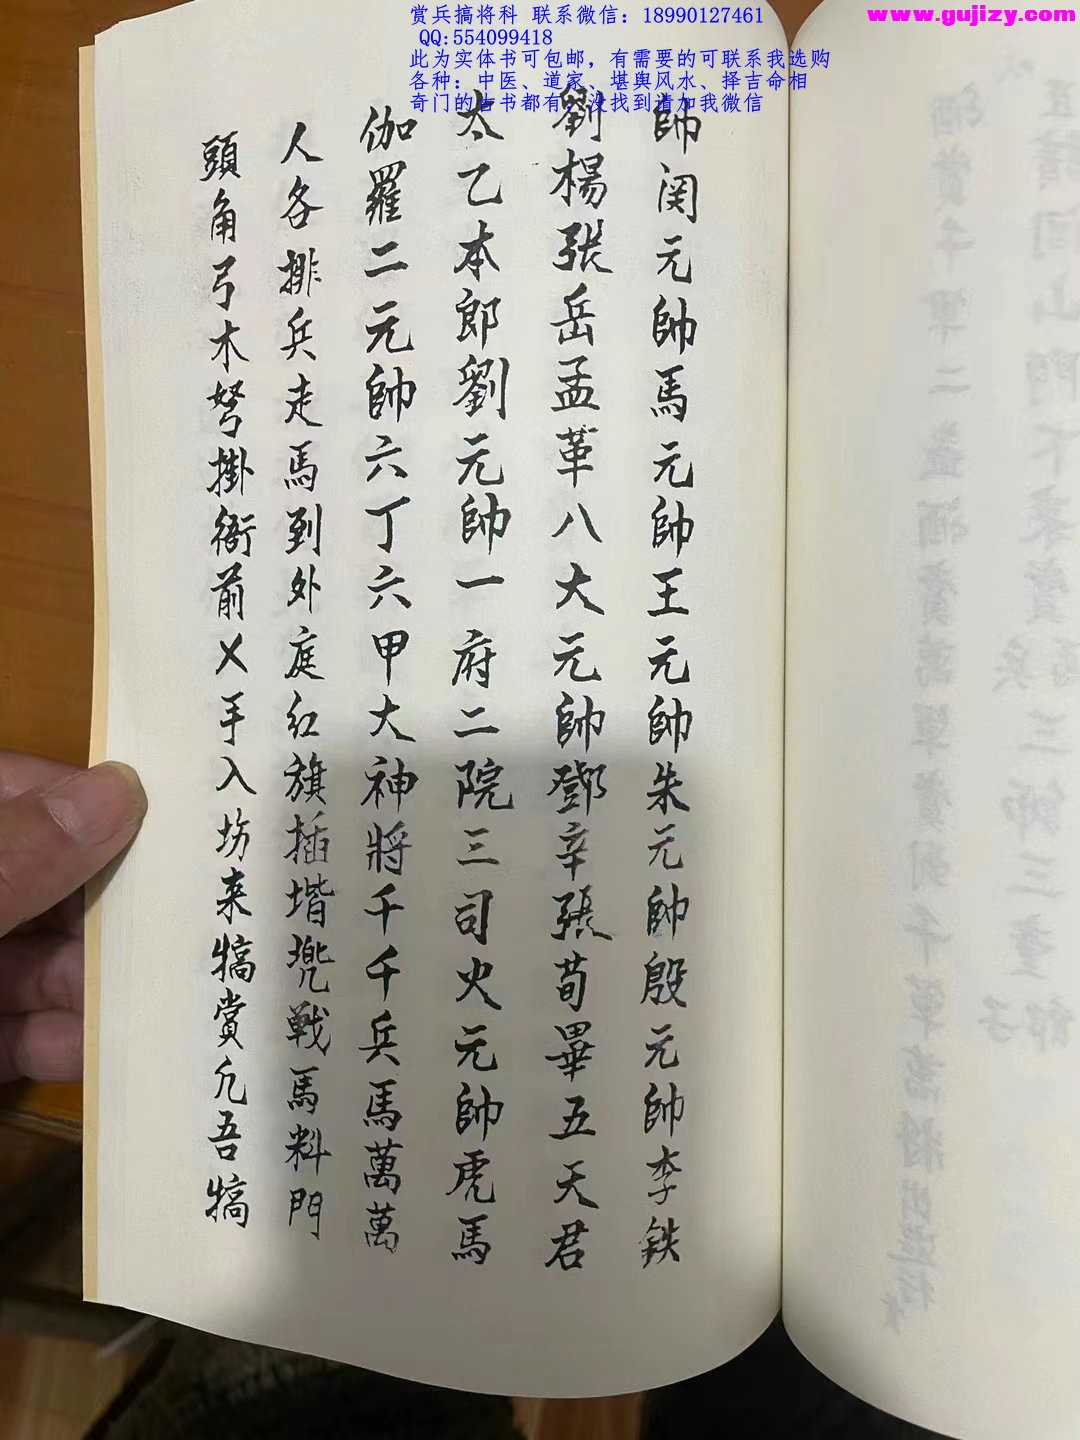 赏兵搞将科 联系微信：18990127461
QQ:554099418
此为实体书可包邮，有需要的可联系我选购
各种：中医、道家、堪舆风水、择吉命相
奇门的古书都有，没找到请加我微信
www.gujizy.com
帥関元帥馬元帥王元帥朱元帥殷元帥李鉄
劉楊張岳孟革八大元帥鄧辛張荀畢五天君
太乙本郎劉元帥一府二院三司火元帥虎馬
伽羅二元帥六丁六甲大神將千千兵馬萬萬
人各排兵走馬到外庭紅旗插堦兜戦馬料門
頭角弓木弩掛衙前乂手入坊来犒賞凢吾犒